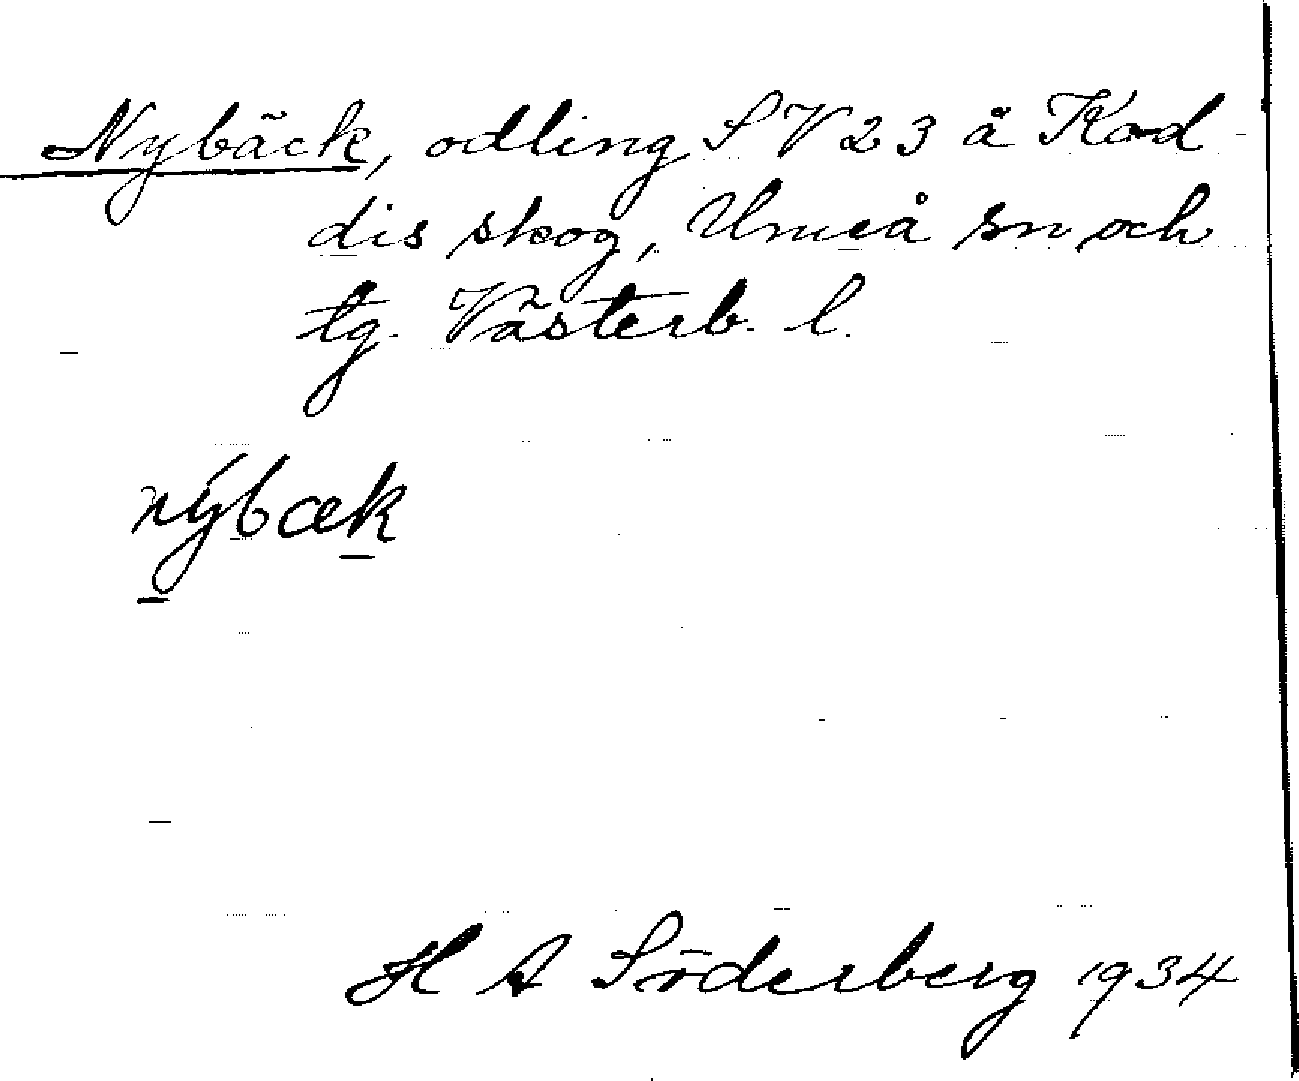 Nybäck, odling SV 23 å Kod-
dis skog, Umeå sn och
tg. Västerb. l.
nýbæk
H A Söderberg 1934